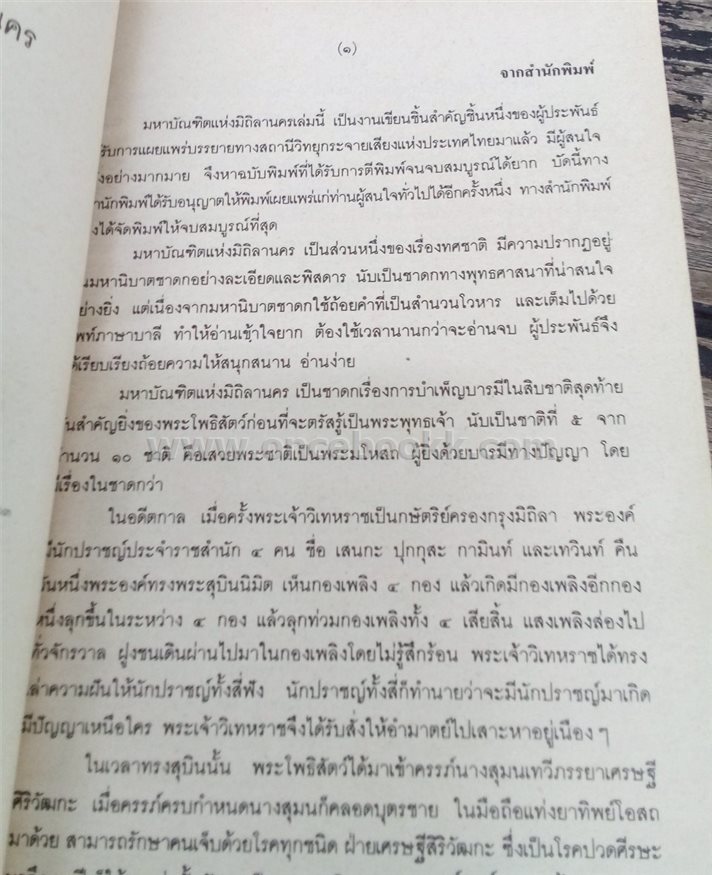 นคร
(๑)
จากสำนักพิมพ์
มหาบัณฑิตแห่งมิถิลานครเล่มนี้ เป็นงานเขียนชิ้นสำคัญชิ้นหนึ่งของผู้ประพันธ์
รับการเผยแพร่บรรยายทางสถานีวิทยุกระจายเสียงแห่งประเทศไทยมาแล้ว มีผู้สนใจ
อย่างมากมาย จึงหาฉบับพิมพ์ที่ได้รับการตีพิมพ์จนจบสมบูรณ์ได้ยาก บัดนี้ทาง
านักพิมพ์ได้รับอนุญาตให้พิมพ์เผยแพร่แก่ท่านผู้สนใจทั่วไปได้อีกครั้งหนึ่ง ทางสำนักพิมพ์
งได้จัดพิมพ์ให้จบสมบูรณ์ที่สุด
มหาบัณฑิตแห่งมิถิลานคร เป็นส่วนหนึ่งของเรื่องทศชาติ มีความปรากฏอยู่
นมหานิบาตชาดกอย่างละเอียดและพิสดาร นับเป็นชาดกทางพุทธศาสนาที่น่าสนใจ
ย่างยิ่ง แต่เนื่องจากมหานิบาตชาดกใช้ถ้อยคำที่เป็นสำนวนโวหาร และเต็มไปด้วย
พท์ภาษาบาลี ทำให้อ่านเข้าใจยาก ต้องใช้เวลานานกว่าจะอ่านจบ ผู้ประพันธ์จึง
ด้เรียบเรียงถ้อยความให้สนุกสนาน อ่านง่าย
มหาบัณฑิตแห่งมิถิลานคร เป็นชาดกเรื่องการบำเพ็ญบารมีในสิบชาติสุดท้าย
ันสำคัญยิ่งของพระโพธิสัตว์ก่อนที่จะตรัสรู้เป็นพระพุทธเจ้า นับเป็นชาติที่ ๕ จาก
ำนวน ๑๐ ชาติ คือเสวยพระชาติเป็นพระมโหสถ ผู้ยิ่งด้วยบารมีทางปัญญา โดย
เรื่องในชาดกว่า
ในอดีตกาล เมื่อครั้งพระเจ้าวิเทหราชเป็นกษัตริย์ครองกรุงมิถิลา พระองค์
มีนักปราชญ์ประจำราชสำนัก ๔ คน ชื่อ เสนกะ ปุกกุสะ กามินท์ และเทวินท์ คืน
วันหนึ่งพระองค์ทรงพระสุบินนิมิต เห็นกองเพลิง ๔ กอง แล้วเกิดมีกองเพลิงอีกกอง
หนึ่งลุกขึ้นในระหว่าง ๔ กอง แล้วลุกท่วมกองเพลิงทั้ง ๔ เสียสิ้น แสงเพลิงส่องไป
ทั่วจักรวาล ฝูงชนเดินผ่านไปมาในกองเพลิงโดยไม่รู้สึกร้อน พระเจ้าวิเทหราชได้ทรง
ล่าความฝันให้นักปราชญ์ทั้งสี่ฟัง นักปราชญ์ทั้งสี่ก็ทำนายว่าจะมีนักปราชญ์มาเกิด
มีปัญญาเหนือใคร พระเจ้าวิเทหราชจึงได้รับสั่งให้อำมาตย์ไปเสาะหาอยู่เนือง ๆ
ในเวลาทรงสุบินนั้น พระโพธิสัตว์ได้มาเข้าครรภ์นางสุมนเทวีภรรยาเศรษฐี
ศิริวัฒกะ เมื่อครรภ์ครบกำหนดนางสุมนก็คลอดบุตรชาย ในมือถือแท่งยาทิพย์โอสถ
มาด้วย สามารถรักษาคนเจ็บด้วยโรคทุกชนิด ฝ่ายเศรษฐีสิริวัฒกะ ซึ่งเป็นโรคปวดศีรษะ